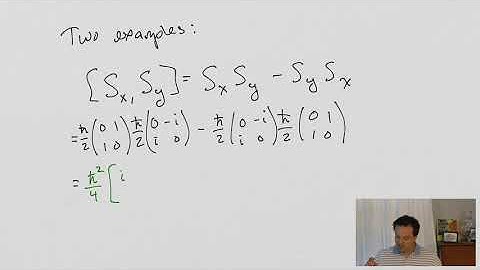 Two examples:
[Sx, Sy] = Sx Sy − Sy Sx
= ħ/2 (0 1 1 0) ħ/2 (0 −i i 0) − ħ/2 (0 −i i 0) ħ/2 (0 1 1 0)
= ħ²/4 [ i